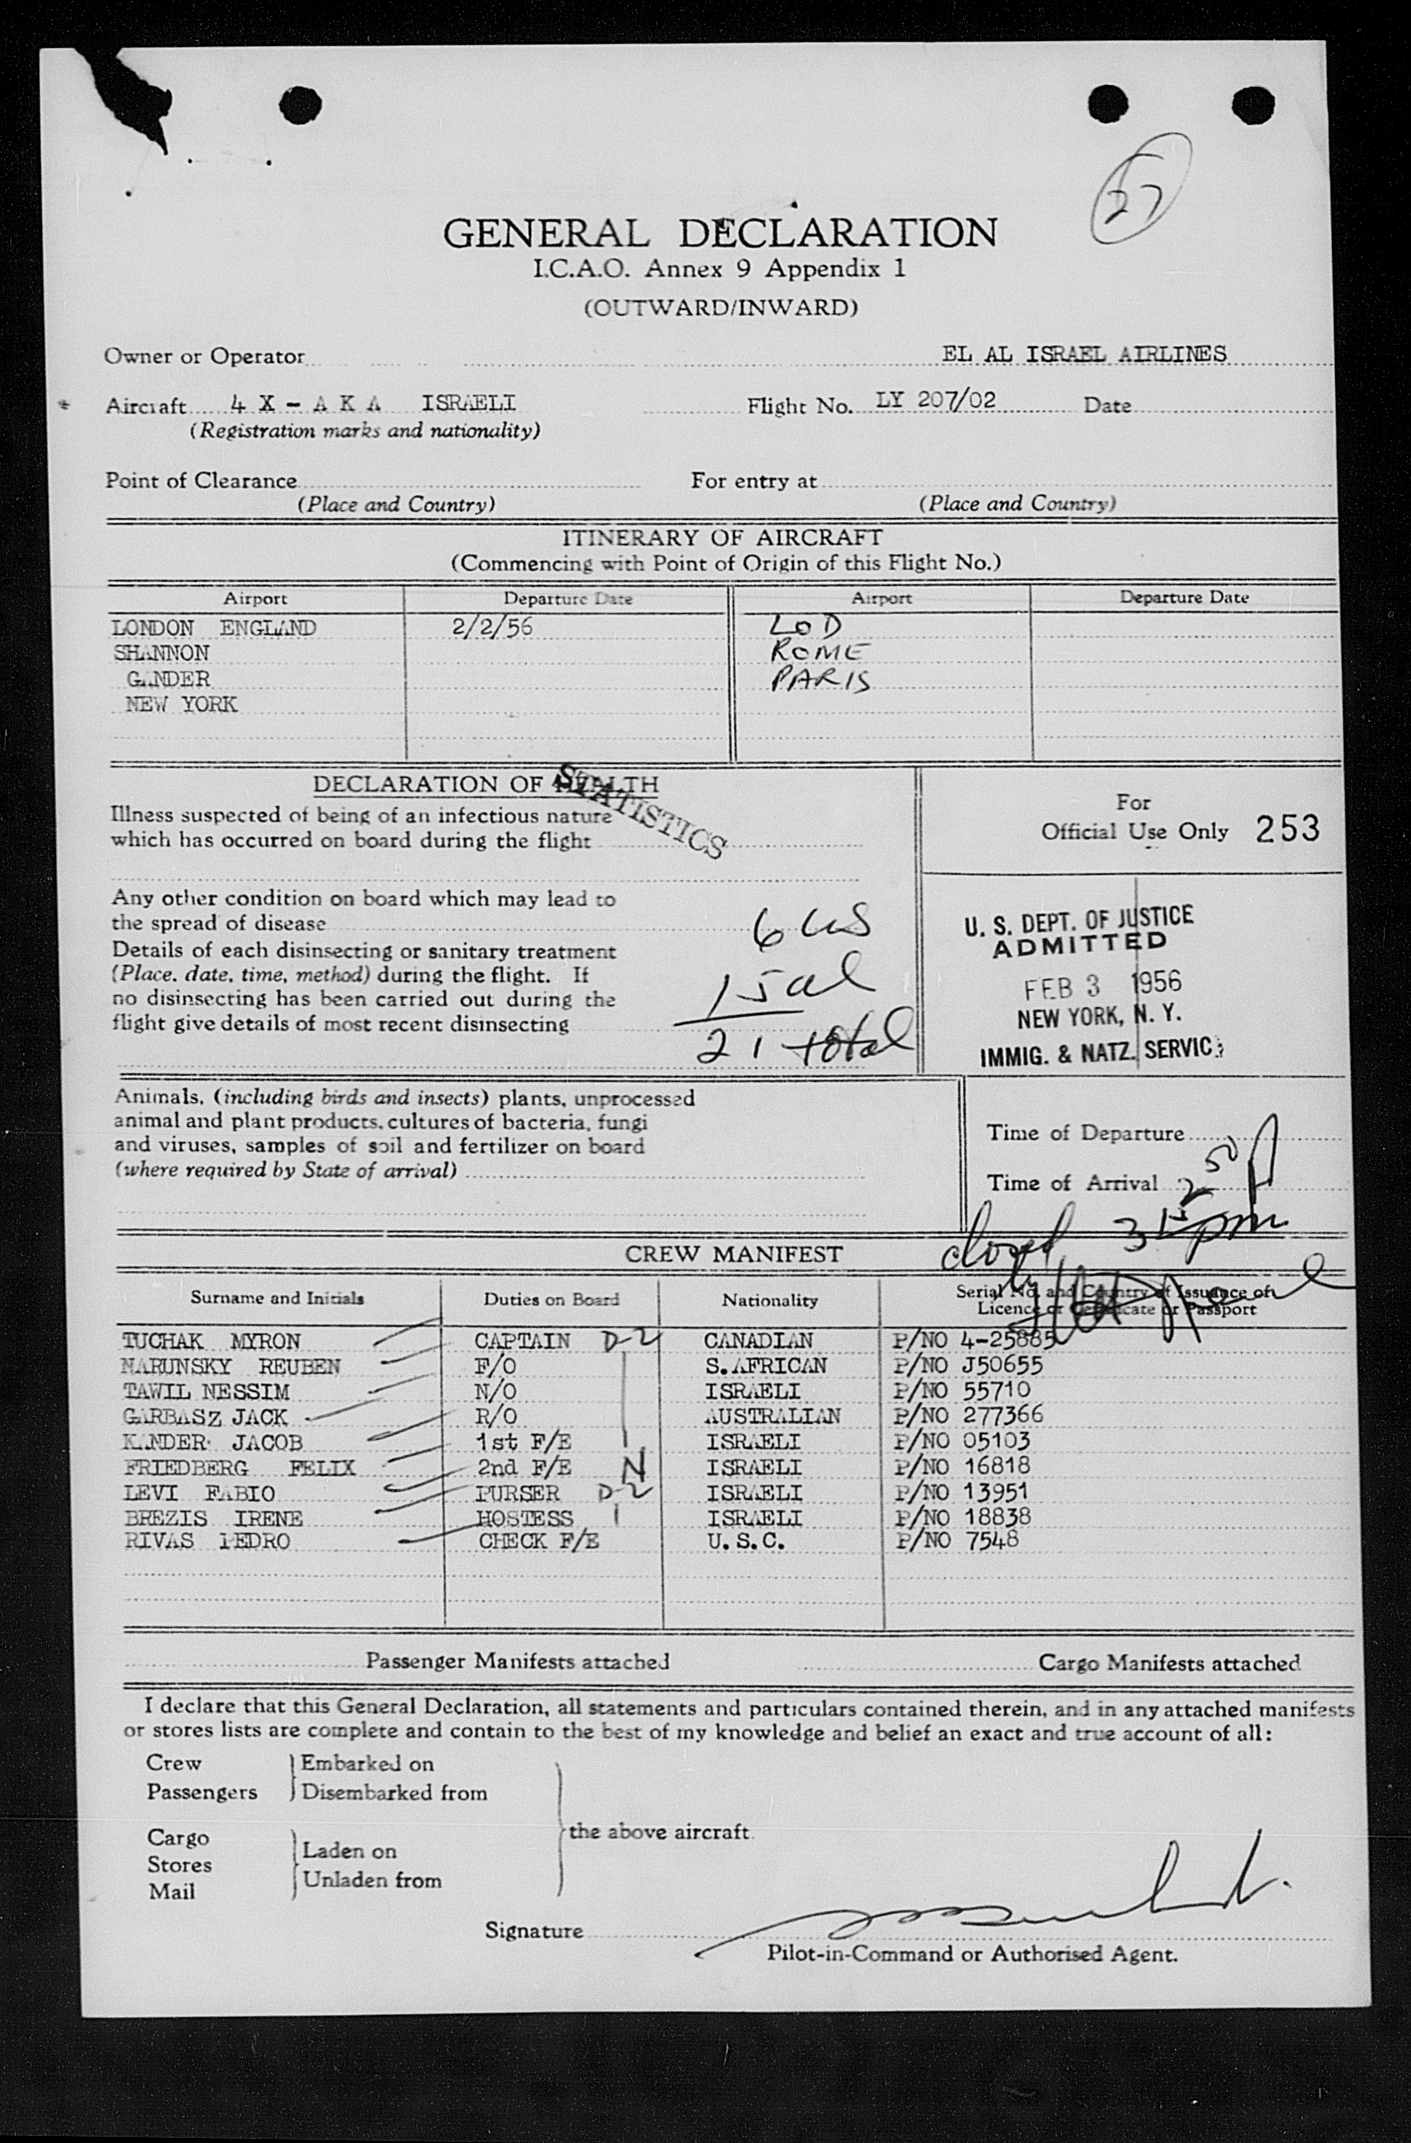 27
GENERAL DECLARATION
I.C.A.O. Annex 9 Appendix 1
(OUTWARD/INWARD)
Owner or Operator EL AL ISRAEL AIRLINES
Aircraft 4 X - A K A ISRAELI Flight No. LY 207/02 Date
(Registration marks and nationality)
Point of Clearance For entry at
(Place and Country) (Place and Country)
ITINERARY OF AIRCRAFT
(Commencing with Point of Origin of this Flight No.)
Airport Departure Date Airport Departure Date
LONDON ENGLAND 2/2/56 LOD
SHANNON ROME
GANDER PARIS
NEW YORK
DECLARATION OF HEALTH
STATISTICS
Illness suspected of being of an infectious nature
which has occurred on board during the flight
For
Official Use Only 253
Any other condition on board which may lead to
the spread of disease
Details of each disinsecting or sanitary treatment
(Place, date, time, method) during the flight. If
no disinsecting has been carried out during the
flight give details of most recent disinsecting
6 us
15 al
21 total
U. S. DEPT. OF JUSTICE
ADMITTED
FEB 3 1956
NEW YORK, N. Y.
IMMIG. & NATZ. SERVICE
Animals, (including birds and insects) plants, unprocessed
animal and plant products, cultures of bacteria, fungi
and viruses, samples of soil and fertilizer on board
(where required by State of arrival)
Time of Departure
Time of Arrival 2 50 P
closed 3 15 pm
by
CREW MANIFEST
Surname and Initials Duties on Board Nationality Serial No. and Country of Issuance of
Licence or Certificate or Passport
TUCHAK MYRON CAPTAIN D-2 CANADIAN P/NO 4-25885
NARUNSKY REUBEN F/O S.AFRICAN P/NO J50655
TAWIL NESSIM N/O ISRAELI P/NO 55710
GARBASZ JACK R/O AUSTRALIAN P/NO 277366
KANDER JACOB 1st F/E ISRAELI P/NO 05103
FRIEDBERG FELIX 2nd F/E N ISRAELI P/NO 16818
LEVI FABIO PURSER D-2 ISRAELI P/NO 13951
BREZIS IRENE HOSTESS ISRAELI P/NO 18838
RIVAS PEDRO CHECK F/E U.S.C. P/NO 7548
Passenger Manifests attached Cargo Manifests attached
I declare that this General Declaration, all statements and particulars contained therein, and in any attached manifests
or stores lists are complete and contain to the best of my knowledge and belief an exact and true account of all:
Crew Embarked on
Passengers Disembarked from
the above aircraft.
Cargo Laden on
Stores
Mail Unladen from
Signature
Pilot-in-Command or Authorised Agent.